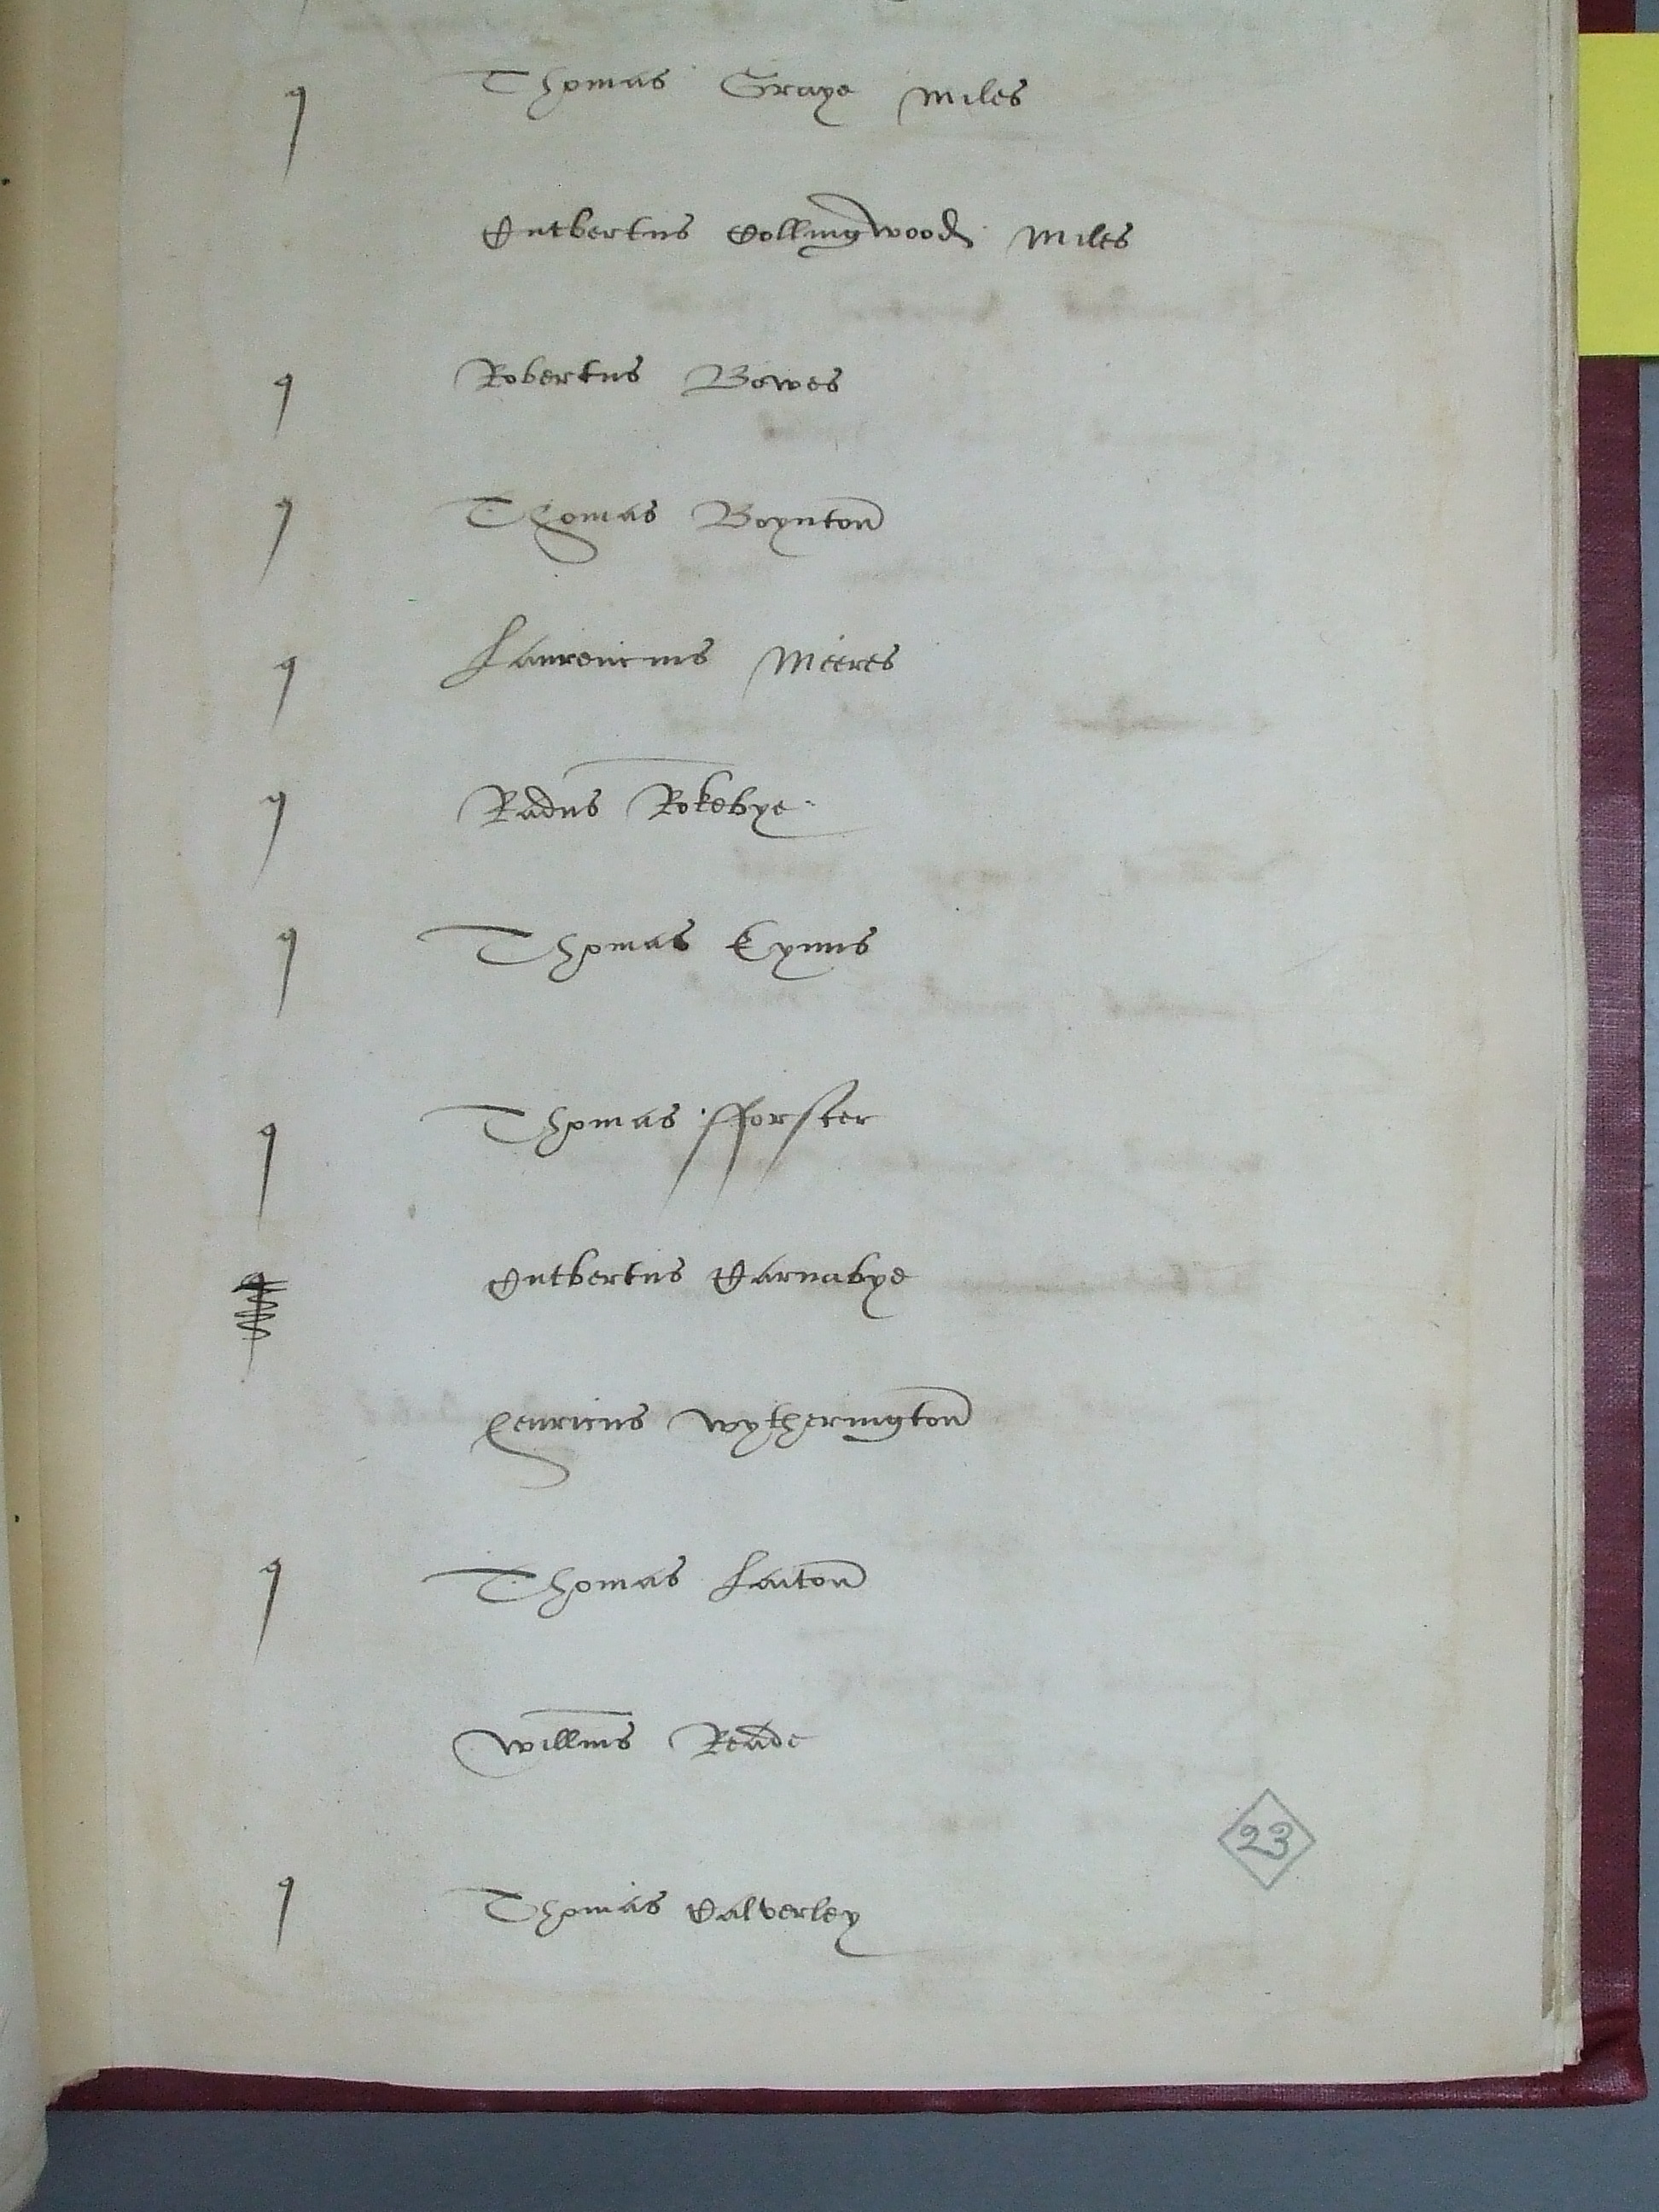 q Thomas Graye Miles
Cutbertus Collingwood Miles
q Robertus Bowes
q Thomas Boynton
q Laurencius Meeres
q Radus Rokebye
q Thomas Kynns
q Thomas fforster
Cutbertus Carnabye
Henricus Wytherington
q Thomas Laiton
Willms Reade
23
q Thomas Calverley